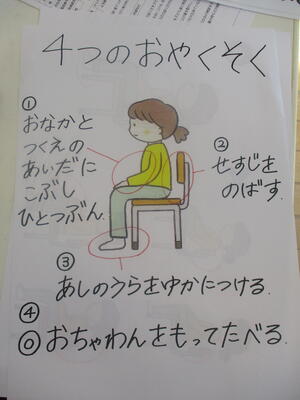 4つのおやくそく
①
おなかと
つくえの
あいだに
こぶし
ひとつぶん.
②
せすじを
のばす.
③
あしのうらをゆかにつける.
④
◎おちゃわんをもってたべる.